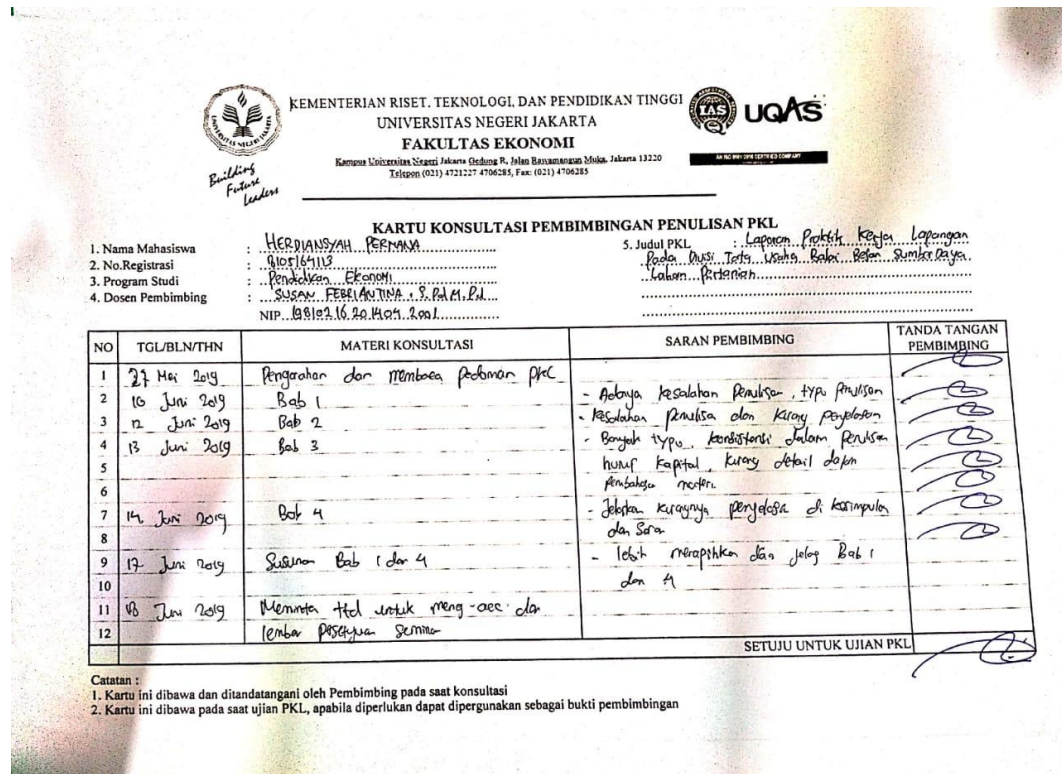 KEMENTERIAN RISET, TEKNOLOGI, DAN PENDIDIKAN TINGGI
UNIVERSITAS NEGERI JAKARTA
FAKULTAS EKONOMI
Kampus Universitas Negeri Jakarta Gedung R, Jalan Rawamangun Muka, Jakarta 13220
Telepon (021) 4721227 4706285, Fax: (021) 4706285
UNIVERSITAS NEGERI JAKARTA
Building
Future
Leaders
IAS UQAS
AN ISO 9001:2015 CERTIFIED COMPANY
KARTU KONSULTASI PEMBIMBINGAN PENULISAN PKL
1. Nama Mahasiswa : HERDIANSYAH PERMANA
2. No.Registrasi : 8105164113
3. Program Studi : Pendidikan Ekonomi
4. Dosen Pembimbing : SUSAN FEBRIANTINA, S.Pd M.Pd
NIP. 19810216 201404 2001
5. Judul PKL : Laporan Praktik Kerja Lapangan
Pada Divisi Tata Usaha Balai Besar Sumber Daya
Lahan Pertanian
NO TGL/BLN/THN MATERI KONSULTASI SARAN PEMBIMBING TANDA TANGAN PEMBIMBING
1 27 Mei 2019 Pengarahan dan membaca pedoman PKL
2 10 Juni 2019 Bab 1 - Adanya kesalahan Penulisan, typo Penulisan
3 12 Juni 2019 Bab 2 - Kesalahan penulisa dan kurang penjelasan
4 13 Juni 2019 Bab 3 - Banyak typo, konsistensi dalam penulisan
5 huruf kapital, kurang detail dalam
6 pembahasan materi.
7 14 Juni 2019 Bab 4 - Jelaskan kurangnya penjelasa di kesimpulan
8 dan Saran
9 17 Juni 2019 Susunan Bab 1 dan 4 - lebih merapihkan dan jelas Bab 1
10 dan 4
11 18 Juni 2019 Meminta ttd untuk meng-acc dan
12 lembar Seminar
SETUJU UNTUK UJIAN PKL
Catatan :
1. Kartu ini dibawa dan ditandatangani oleh Pembimbing pada saat konsultasi
2. Kartu ini dibawa pada saat ujian PKL, apabila diperlukan dapat dipergunakan sebagai bukti pembimbingan